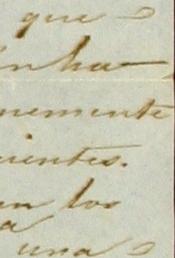 que
inha
nemente
uientes.
en los
a
una